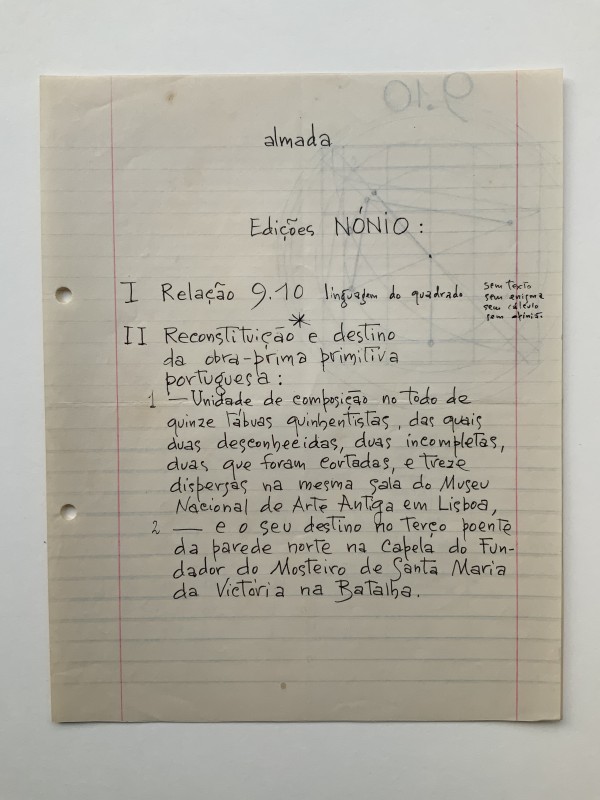 9.10
almada
Edições NÓNIO :
I Relação 9.10 linguagem do quadrado
sem texto
sem enigma
sem cálculo
sem opinião
*
II Reconstituição e destino
da obra-prima primitiva
portuguesa :
1 — Unidade de composição no todo de
quinze tábuas quinhentistas, das quais
duas desconhecidas, duas incompletas,
duas que foram cortadas, e treze
dispersas na mesma sala do Museu
Nacional de Arte Antiga em Lisboa,
2 — e o seu destino no terço poente
da parede norte na Capela do Fun-
dador do Mosteiro de Santa Maria
da Victória na Batalha.